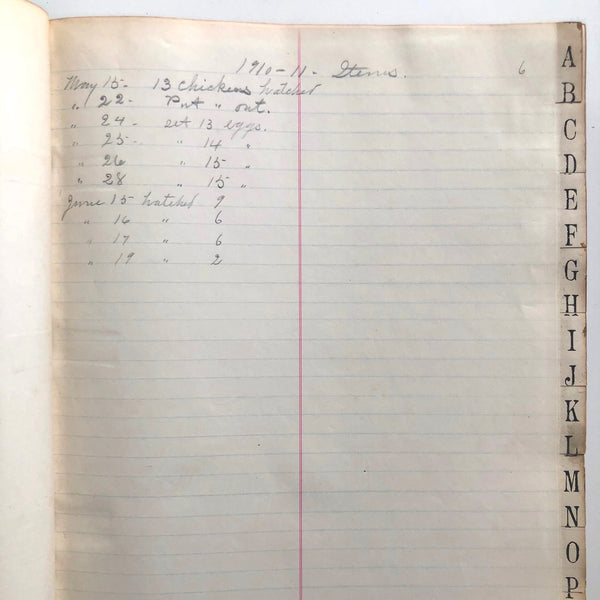 1910-11- Items. 6
May 15- 13 chickens hatched
" 22- Put " out.
" 24- set 13 eggs.
" 25- " 14 "
" 26 " 15 "
" 28 " 15 "
June 15 hatched 9
" 16 " 6
" 17 " 6
" 19 " 2
A
B
C
D
E
F
G
H
I
J
K
L
M
N
O
P